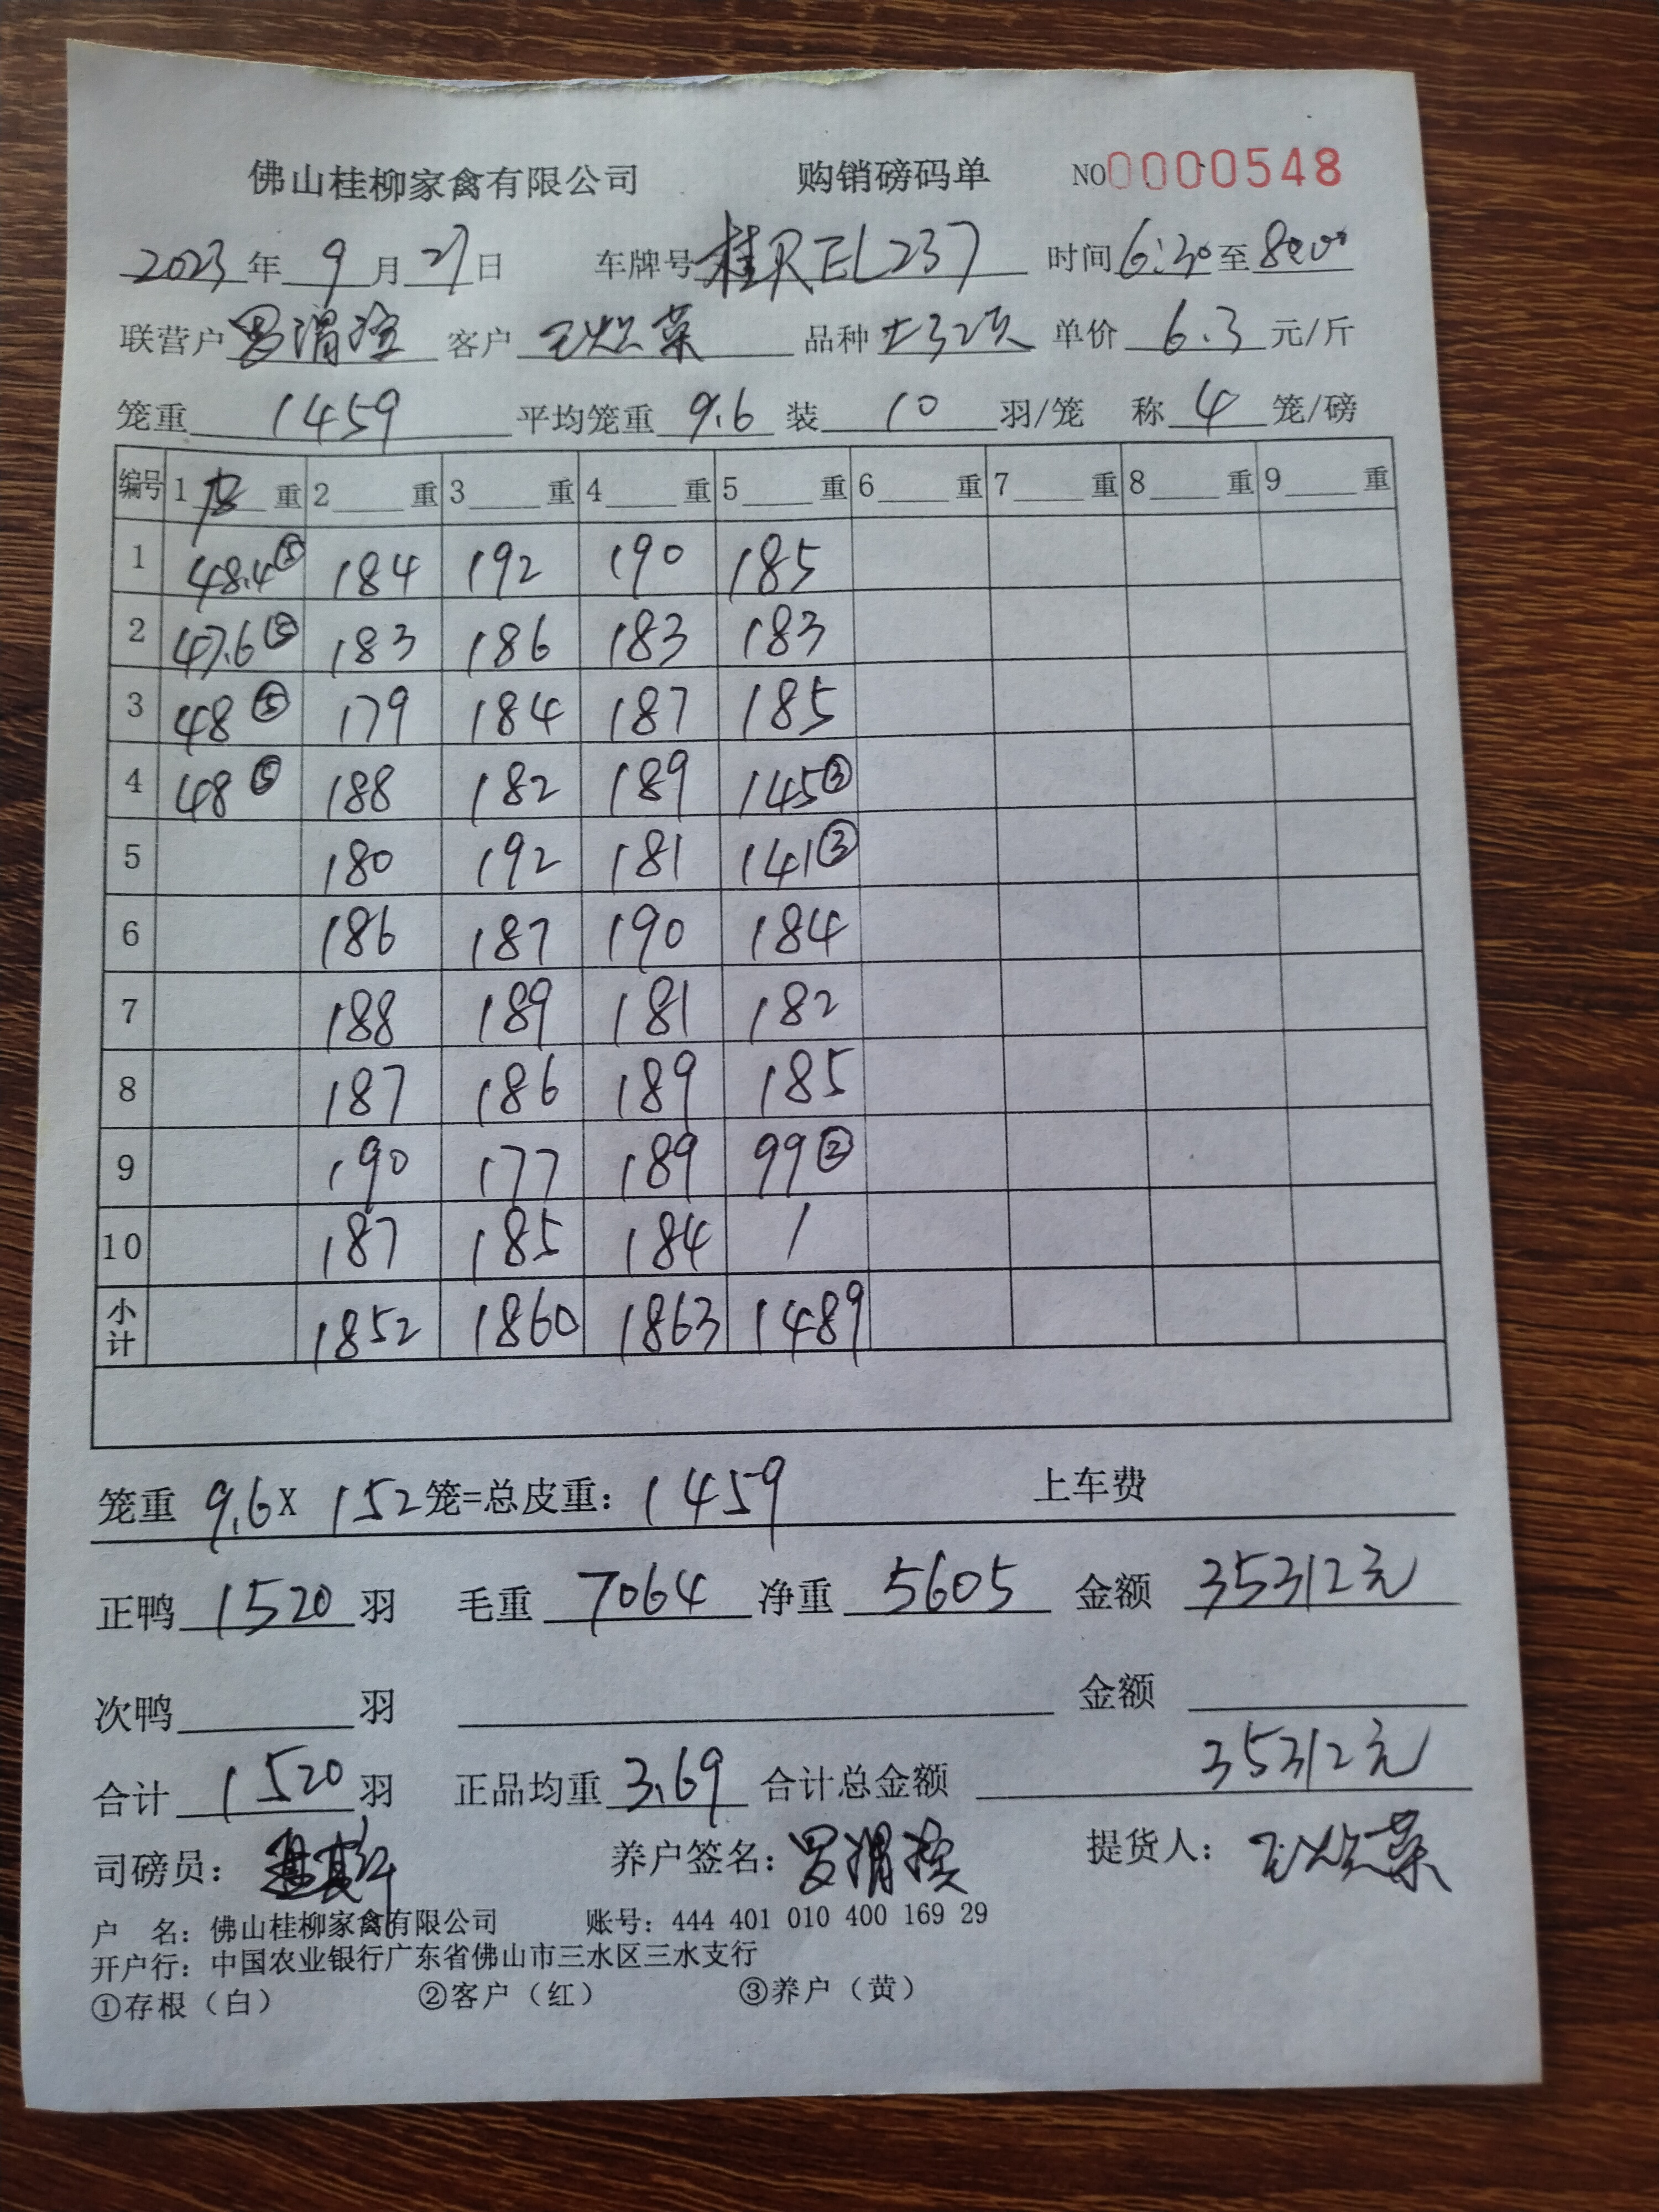 佛山桂柳家禽有限公司 购销磅码单 NO0000548
2023年9月27日 车牌号桂REL237 时间6:30至8:00
联营户 罗渭 客户 荣 品种 单价6.3元/斤
笼重1459平均笼重9.6装10羽/笼 称4笼/磅
编号 1皮重 2重 3重 4重 5重 6重 7重 8重 9重
1 48.4⑤ 184 192 190 185
2 47.6⑤ 183 186 183 183
3 48⑤ 179 184 187 185
4 48⑤ 188 182 189 145③
5 180 192 181 141③
6 186 187 190 184
7 188 189 181 182
8 187 186 189 185
9 190 177 189 99②
10 187 185 184 /
小计 1852 1860 1863 1489
笼重9.6X152笼=总皮重:1459 上车费
正鸭1520羽 毛重7064净重5605 金额35312元
次鸭 羽 金额
合计1520羽 正品均重3.69合计总金额35312元
司磅员: 养户签名:罗渭 提货人: 荣
户 名:佛山桂柳家禽有限公司 账号:444 401 010 400 169 29
开户行:中国农业银行广东省佛山市三水区三水支行
①存根(白) ②客户(红) ③养户(黄)